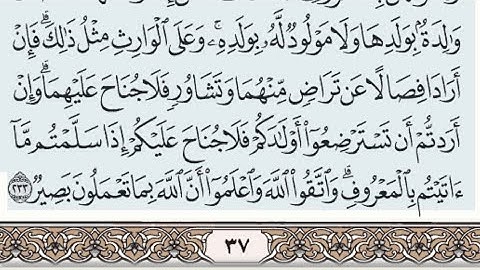 وَٰلِدَةُۢ بِوَلَدِهَا وَلَا مَوۡلُودٞ لَّهُۥ بِوَلَدِهِۦۚ وَعَلَى ٱلۡوَارِثِ مِثۡلُ ذَٰلِكَۗ فَإِنۡ
أَرَادَا فِصَالًا عَن تَرَاضٖ مِّنۡهُمَا وَتَشَاوُرٖ فَلَا جُنَاحَ عَلَيۡهِمَاۗ وَإِنۡ
أَرَدتُّمۡ أَن تَسۡتَرۡضِعُوٓاْ أَوۡلَٰدَكُمۡ فَلَا جُنَاحَ عَلَيۡكُمۡ إِذَا سَلَّمۡتُم مَّآ
ءَاتَيۡتُم بِٱلۡمَعۡرُوفِۗ وَٱتَّقُواْ ٱللَّهَ وَٱعۡلَمُوٓاْ أَنَّ ٱللَّهَ بِمَا تَعۡمَلُونَ بَصِيرٞ ٢٣٣
٣٧